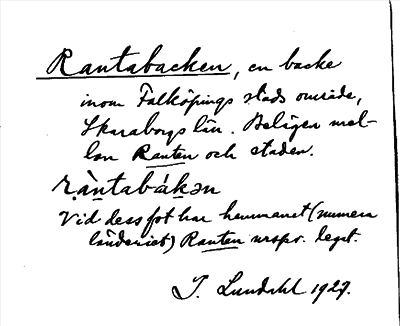 Rantabacken, en backe
inom Falköpings stads område,
Skaraborgs län. Belägen mel-
lan Ranten och staden.
ràntabákən
Vid dess fot har hemmanet (numera
länderiet) Ranten urspr. legat.
J. Lundahl 1927.